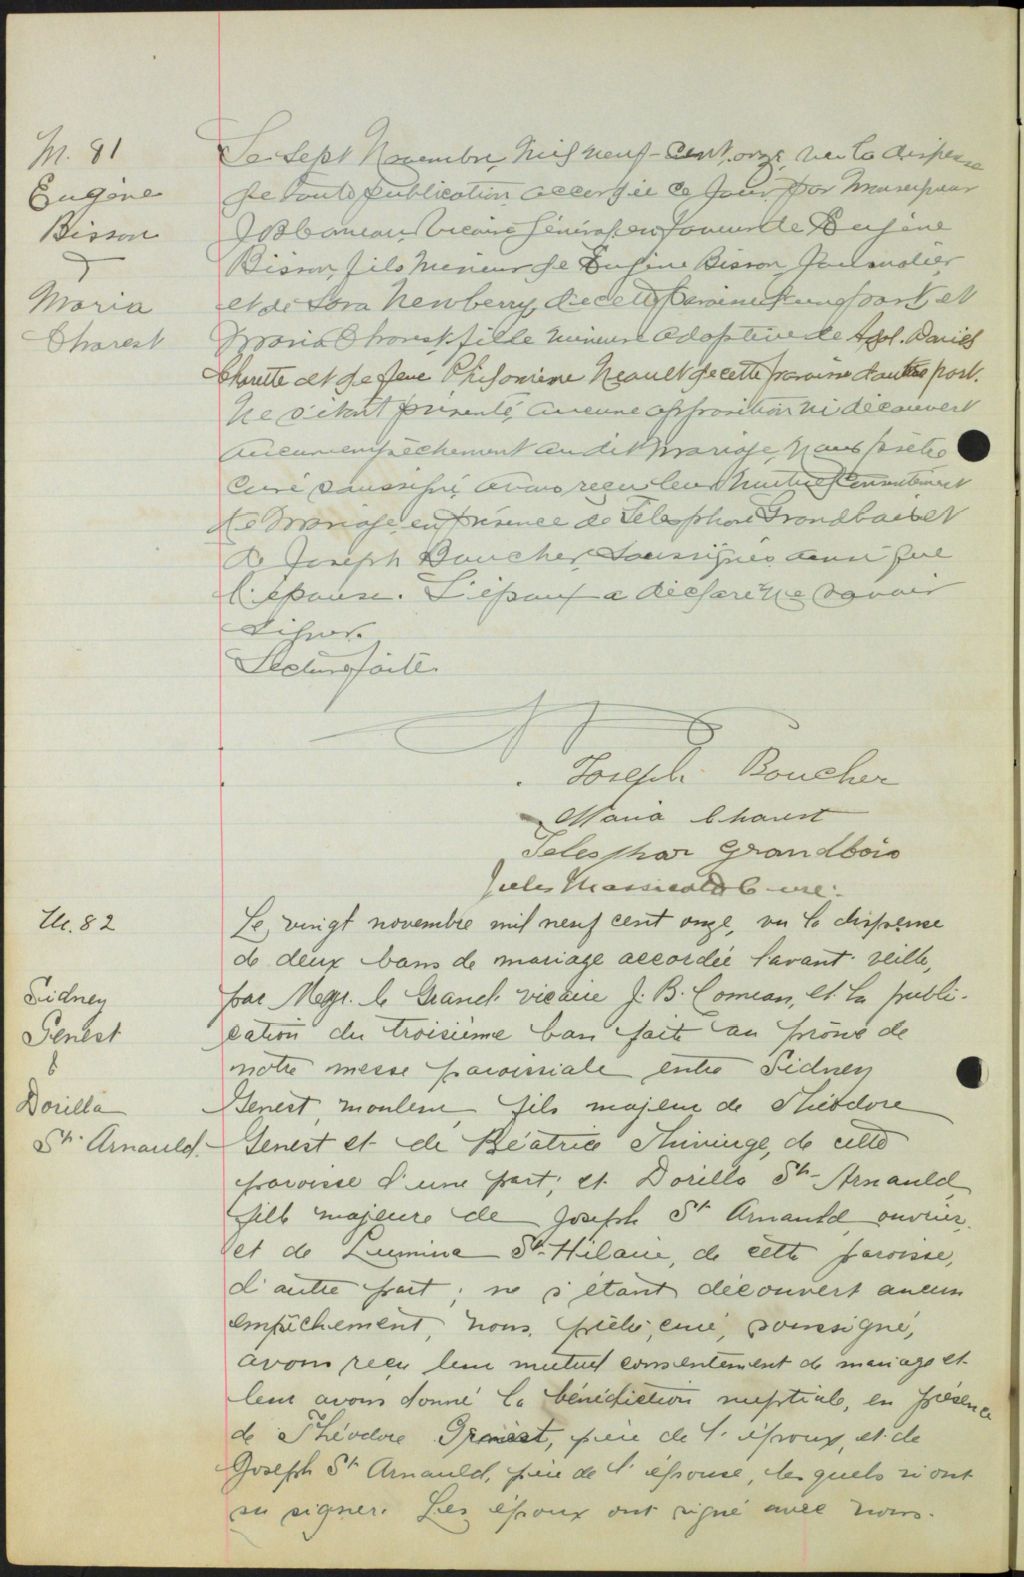 M. 81
Eugène
Bisson
&
Maria
Charest
Le sept Novembre, mil neuf-cent, onze, vu la dispense
de toute publication accordée ce jour par Monseigneur
J B Comeau, Vicaire Général, en faveur de Eugène
Bisson, fils mineur de Eugène Bisson, Journalier
et de Lora Newberry, de cette paroisse d'une part, et
Maria Charest, fille mineure adoptive de Adol. Daniel
Charette et de feue Philomène Neault de cette paroisse d'autre part.
Ne s'étant présenté aucune opposition ni découvert
aucun empêchement au dit mariage, Nous prêtre
Curé soussigné, avons reçu leur mutuel consentement
de mariage, en présence de Télesphore Grandbois et
de Joseph Boucher, soussignés ainsi que
l'épouse. L'époux a déclaré ne savoir
signer.
Lecture faite.
Joseph Boucher
Maria Charest
Telesphor Grandbois
Jules Massicotte Curé.
M. 82
Sidney
Genest
&
Dorilla
St. Arnauld.
Le vingt novembre mil neuf cent onze, vu la dispense
de deux bans de mariage accordée l'avant-veille,
par Mgr. le Grand-vicaire J. B. Comeau, et la publi-
cation du troisième ban faite au prône de
notre messe paroissiale entre Sidney
Genest, mouleur, fils majeur de Théodore
Genest et de Béatrice Thivinge, de cette
paroisse d'une part; et Dorilla St-Arnauld,
fille majeure de Joseph St Arnauld, ouvrier,
et de Lumina St-Hilaire, de cette paroisse,
d'autre part; ne s'étant découvert aucun
empêchement, nous, prêtre, curé, soussigné,
avons reçu leur mutuel consentement de mariage et
leur avons donné la bénédiction nuptiale, en présence
de Théodore Genest, père de l'époux, et de
Joseph St Arnauld, père de l'épouse, lesquels n'ont
su signer. Les époux ont signé avec nous.